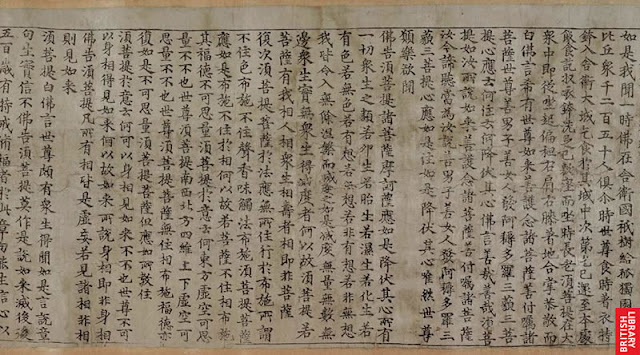 如是我聞一時佛在舍衛國祇樹給孤獨園與大
比丘眾千二百五十人俱尒時世尊食時著衣持
鉢入舍衛大城乞食於其城中次第乞已還至本處
飯食訖收衣鉢洗足已敷座而坐時長老須菩提在大
眾中即從座起偏袒右肩右膝著地合掌恭敬而
白佛言希有世尊如來善護念諸菩薩善付囑諸
菩薩世尊善男子善女人發阿耨多羅三藐三菩
提心應云何住云何降伏其心佛言善哉善哉須菩
提如汝所說如來善護念諸菩薩善付囑諸菩薩
汝今諦聽當為汝說善男子善女人發阿耨多羅三
藐三菩提心應如是住如是降伏其心唯然世尊
願樂欲聞
佛告須菩提諸菩薩摩訶薩應如是降伏其心所有
一切眾生之類若卵生若胎生若濕生若化生若
有色若無色若有想若無想若非有想若非無想
我皆令入無餘涅槃而滅度之如是滅度無量無數無
邊眾生實無眾生得滅度者何以故須菩提若
菩薩有我相人相眾生相壽者相即非菩薩
復次須菩提菩薩於法應無所住行於布施所謂
不住色布施不住聲香味觸法布施須菩提菩薩
應如是布施不住於相何以故若菩薩不住相布施
其福德不可思量須菩提於意云何東方虛空可思
量不不也世尊須菩提南西北方四維上下虛空可
思量不不也世尊須菩提菩薩無住相布施福德亦
復如是不可思量須菩提菩薩但應如所教住
須菩提於意云何可以身相見如來不不也世尊不可
以身相得見如來何以故如來所說身相即非身相
佛告須菩提凡所有相皆是虛妄若見諸相非相
則見如來
須菩提白佛言世尊頗有眾生得聞如是言說章
句生實信不佛告須菩提莫作是說如來滅後後
五百歲有持戒修福者於此章句能生信心以
BRITISH
LIBRARY